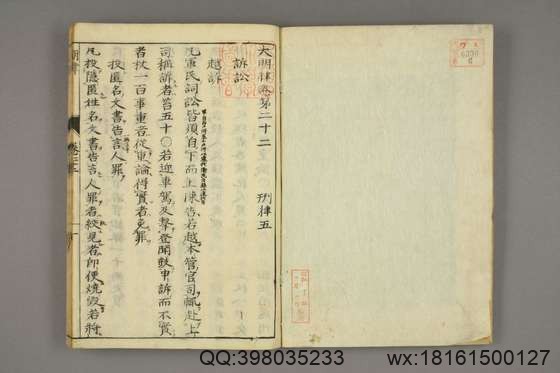 大明律卷第二十二　刑律五
訴訟
越訴
凡軍民詞訟皆須自下而上陳告若越本管官司輒赴上
司稱訴者笞五十〇若迎車駕及擊登聞鼓申訴而不實
者杖一百事重者從重論得實者免罪
投匿名文書告言人罪
凡投隱匿姓名文書告言人罪者絞見者即便燒毀若將
QQ:398035233
wx:18161500127